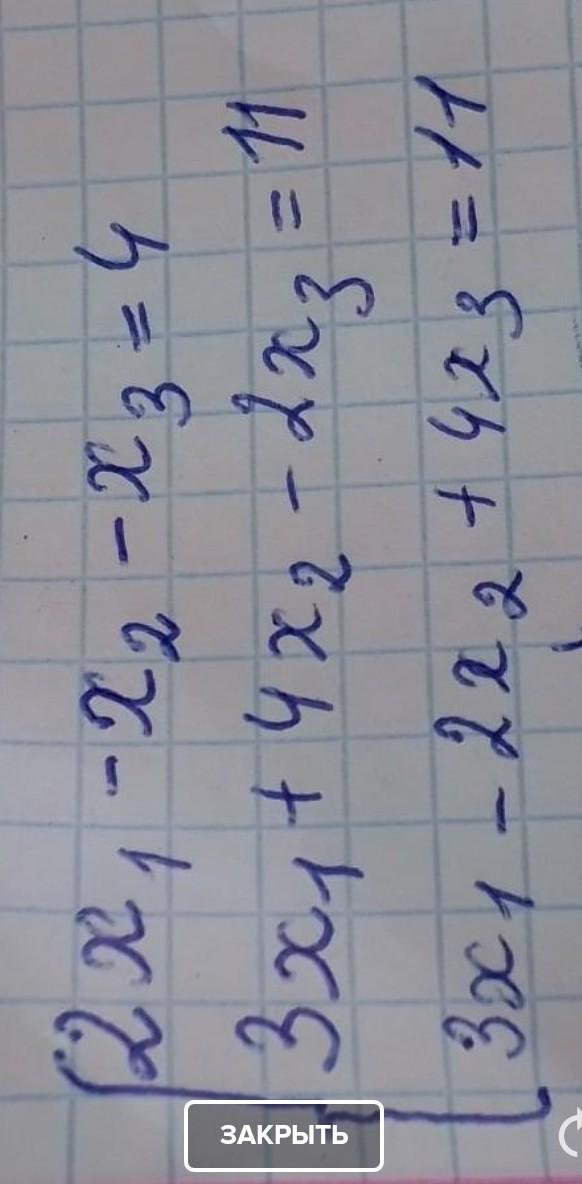 2x₁ - x₂ - x₃ = 4
3x₁ + 4x₂ - 2x₃ = 11
3x₁ - 2x₂ + 4x₃ = 11
ЗАКРЫТЬ